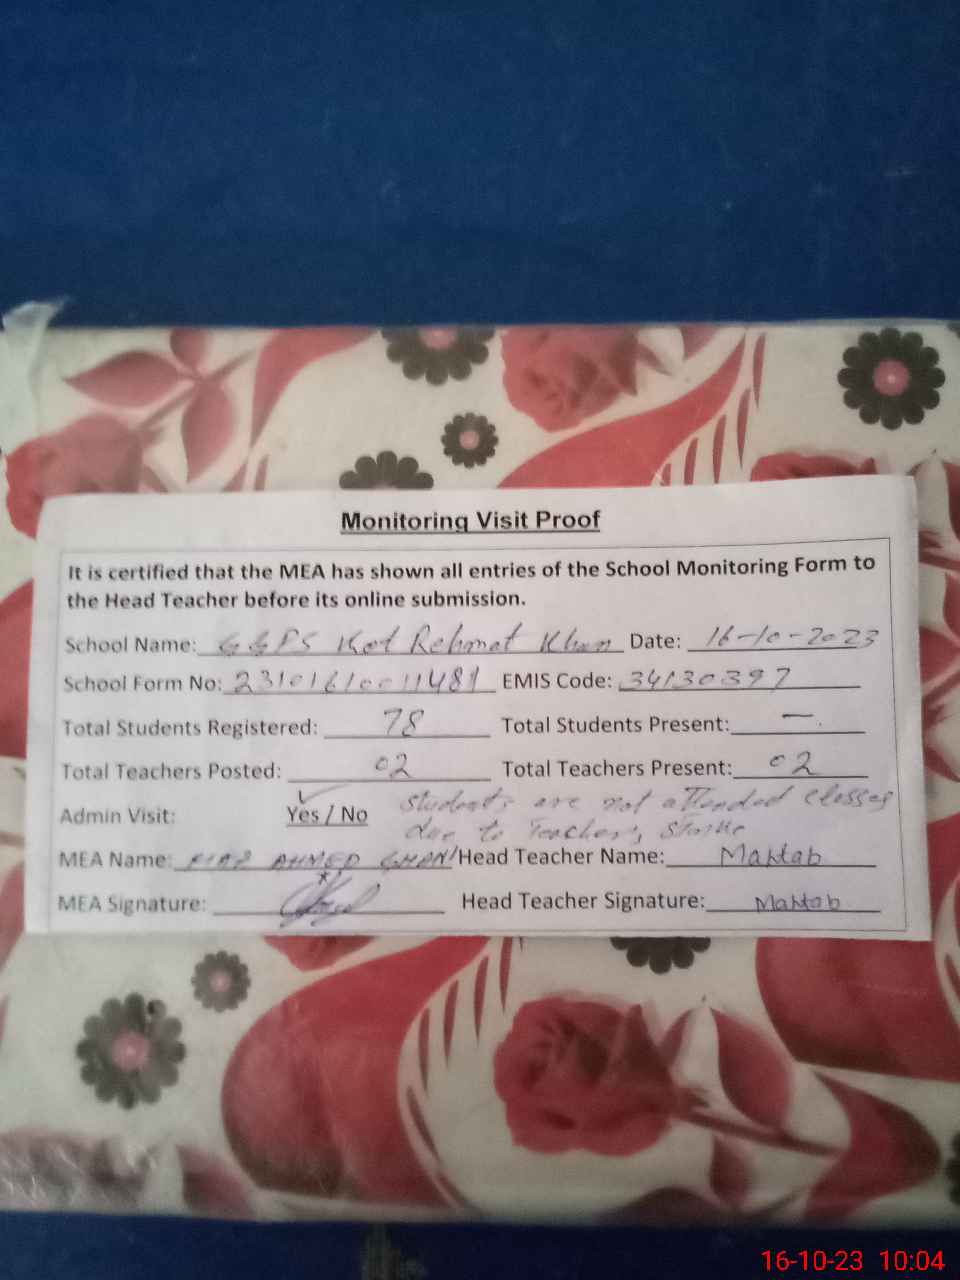 Monitoring Visit Proof
It is certified that the MEA has shown all entries of the School Monitoring Form to
the Head Teacher before its online submission.
School Name: GGPS Kot Rehmat Khan Date: 16-10-2023
School Form No: 23101610011481 EMIS Code: 34130397
Total Students Registered: 78 Total Students Present: —
Total Teachers Posted: 02 Total Teachers Present: 02
Admin Visit: Yes / No Students are not attended classes
due to Teachers, strike
MEA Name: AHMED Head Teacher Name: Mahtab
MEA Signature: Head Teacher Signature: Mahtab
16-10-23 10:04